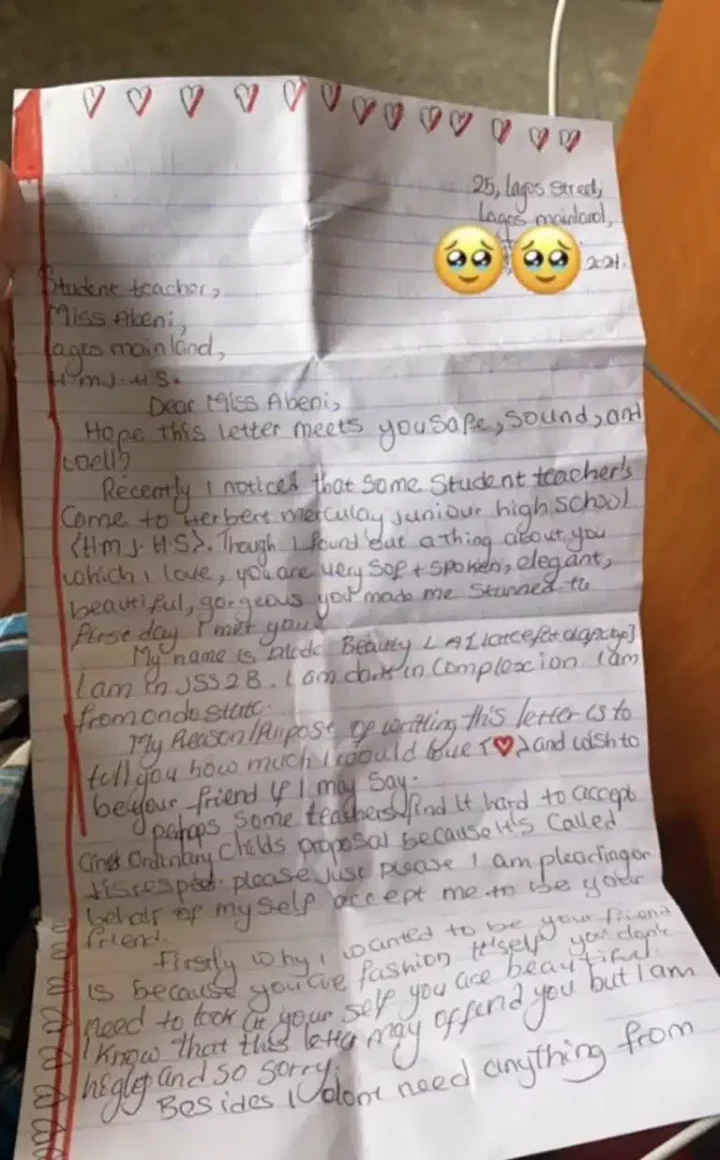 25, lagos street,
Lagos mainland,
2021.
Student teacher,
Miss Abeni,
Lagos mainland,
H.M.J.H.S.
Dear Miss Abeni,
Hope this letter meets you safe, sound, and
well,
Recently I noticed that some Student teacher's
Came to Herbert merculay juniour high school
<H.M.J.H.S>. Though I found out a thing about you
which i love, you are very soft spoken, elegant,
beautiful, gorgeous you made me stunned the
first day I met you.
My name is Beauty
I am in JSS2B. I am dark in complexion. I am
from ondo state.
My Reason/Purpose of writting this letter is to
tell you how much I would love <❤> and wish to
be your friend if I may say.
pahaps some teachers find it hard to accept
Ordinary childs proposal because it's called
disrespect. please just please I am pleading on
behalf of my self accept me to be your
friend.
Firstly why i wanted to be your friend
is because you are fashion itself you don't
need to look at your self you are beautiful.
I know that this letter may offend you but I am
and so sorry.
Besides I dont need anything from